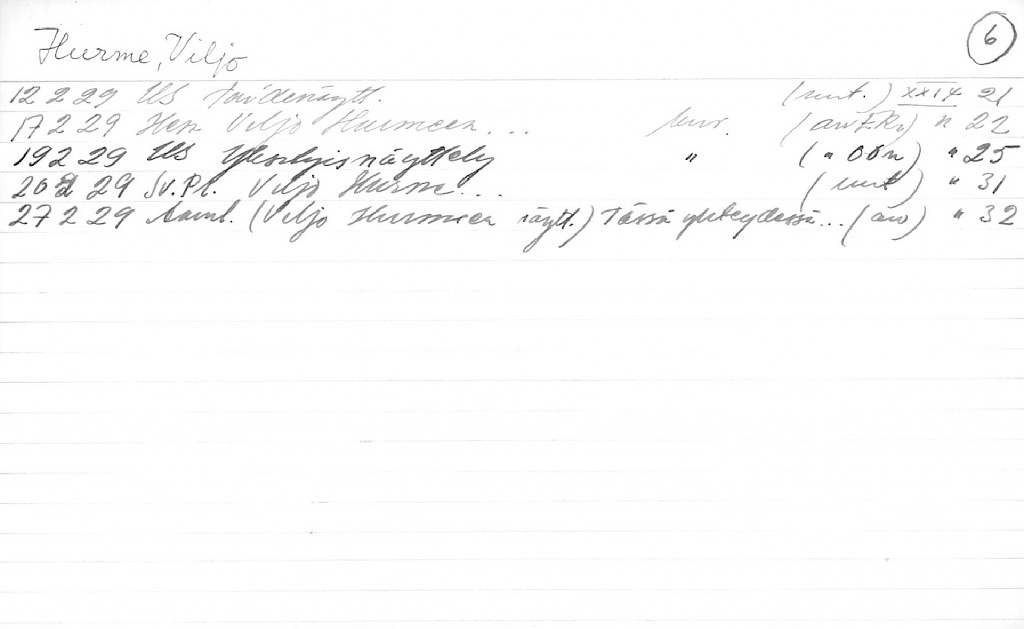 6
Hurme, Viljo
12 2 29 US Taidenäytt. (uut.) XXIX 21
17 2 29 Hels Viljo Hurmeen... kuv. (arv E.R.) " 22
19 2 29 US Yksityisnäyttely " ( " OÖn) " 25
20 2 29 Sv.Pr. Viljo Hurme... (uut) " 31
27 2 29 Aamul. (Viljo Hurmeen näytt.) Tässä yhteydessä... (arv) " 32